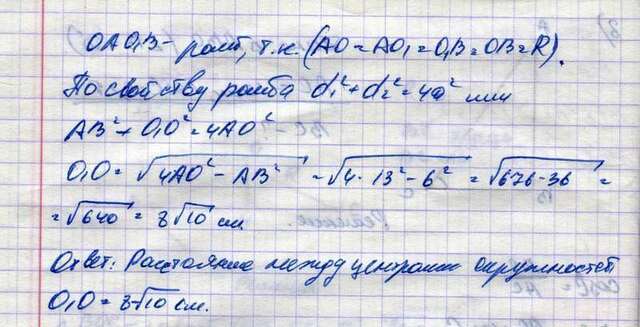 OAO₁B - ромб, т.к. (AO = AO₁ = O₁B = OB = R).
По свойству ромба d₁² + d₂² = 4a² или
AB² + O₁O² = 4AO²
O₁O = √(4AO² - AB²) = √(4·13² - 6²) = √(676 - 36) =
= √640 = 8√10 см.
Ответ: Расстояние между центрами окружностей
O₁O = 8√10 см.